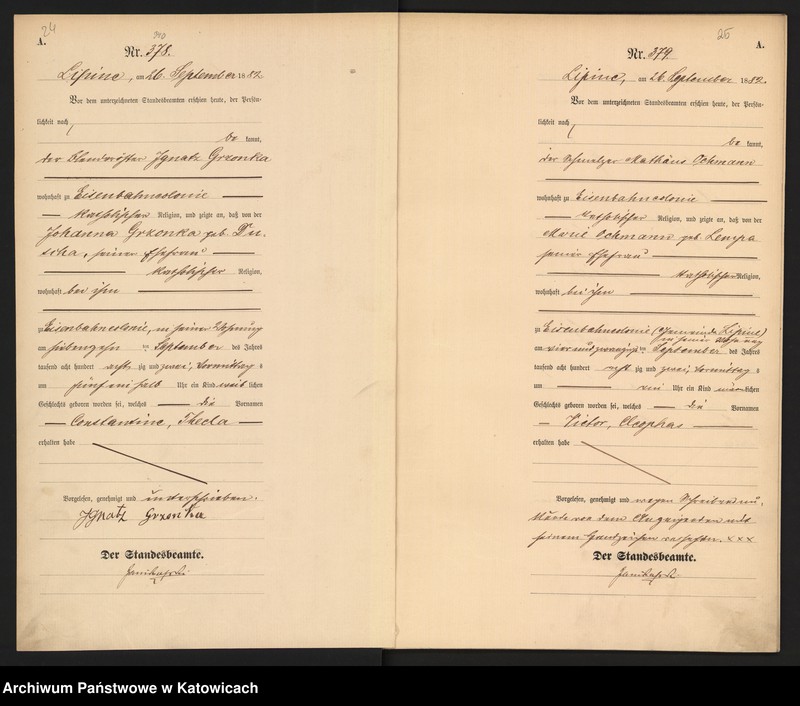 24
A.
Nr. 378.
Lipine, am 26. September 1882
Vor dem unterzeichneten Standesbeamten erschien heute, der Persön-
lichkeit nach
be kannt,
der Ignatz Grzonka
wohnhaft zu Eisenbahncolonie
katholischer Religion, und zeigte an, daß von der
Johanna Grzonka geb. Du-
scha, seiner Ehefrau
katholischer Religion,
wohnhaft bei ihm
zu Eisenbahncolonie, in seiner Wohnung
am siebenzehn ten September des Jahres
tausend acht hundert acht zig und zwei, Vormittag s
um fünf ein halb Uhr ein Kind weib lichen
Geschlechts geboren worden sei, welches die Vornamen
Constantine, Thecla
erhalten habe
Vorgelesen, genehmigt und unterschrieben.
Ignatz Grzonka
Der Standesbeamte.
25
A.
Nr. 379.
Lipine, am 26. September 1882.
Vor dem unterzeichneten Standesbeamten erschien heute, der Persön-
lichkeit nach
be kannt,
der Schmelzer Mathäus Ochmann
wohnhaft zu Eisenbahncolonie
katholischer Religion, und zeigte an, daß von der
Marie Ochmann geb. Lempa
seiner Ehefrau
katholischer Religion,
wohnhaft bei ihm
zu Eisenbahncolonie (Gemeinde Lipine)
in seiner Wohnung
am vierundzwanzigs ten September des Jahres
tausend acht hundert acht zig und zwei, Vormittag s
um ein Uhr ein Kind männ lichen
Geschlechts geboren worden sei, welches die Vornamen
Victor, Cleophas
erhalten habe
Vorgelesen, genehmigt und wegen Schreibensun-
kunde von dem Anzeigenden mit
seinem Handzeichen versehen. xxx
Der Standesbeamte.
Archiwum Państwowe w Katowicach